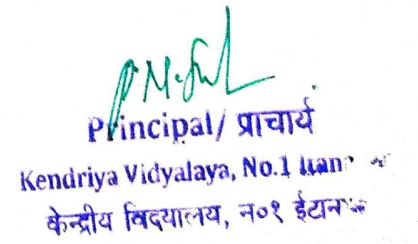 Principal/ प्राचार्य
Kendriya Vidyalaya, No.1
केन्द्रीय विद्यालय, न०१